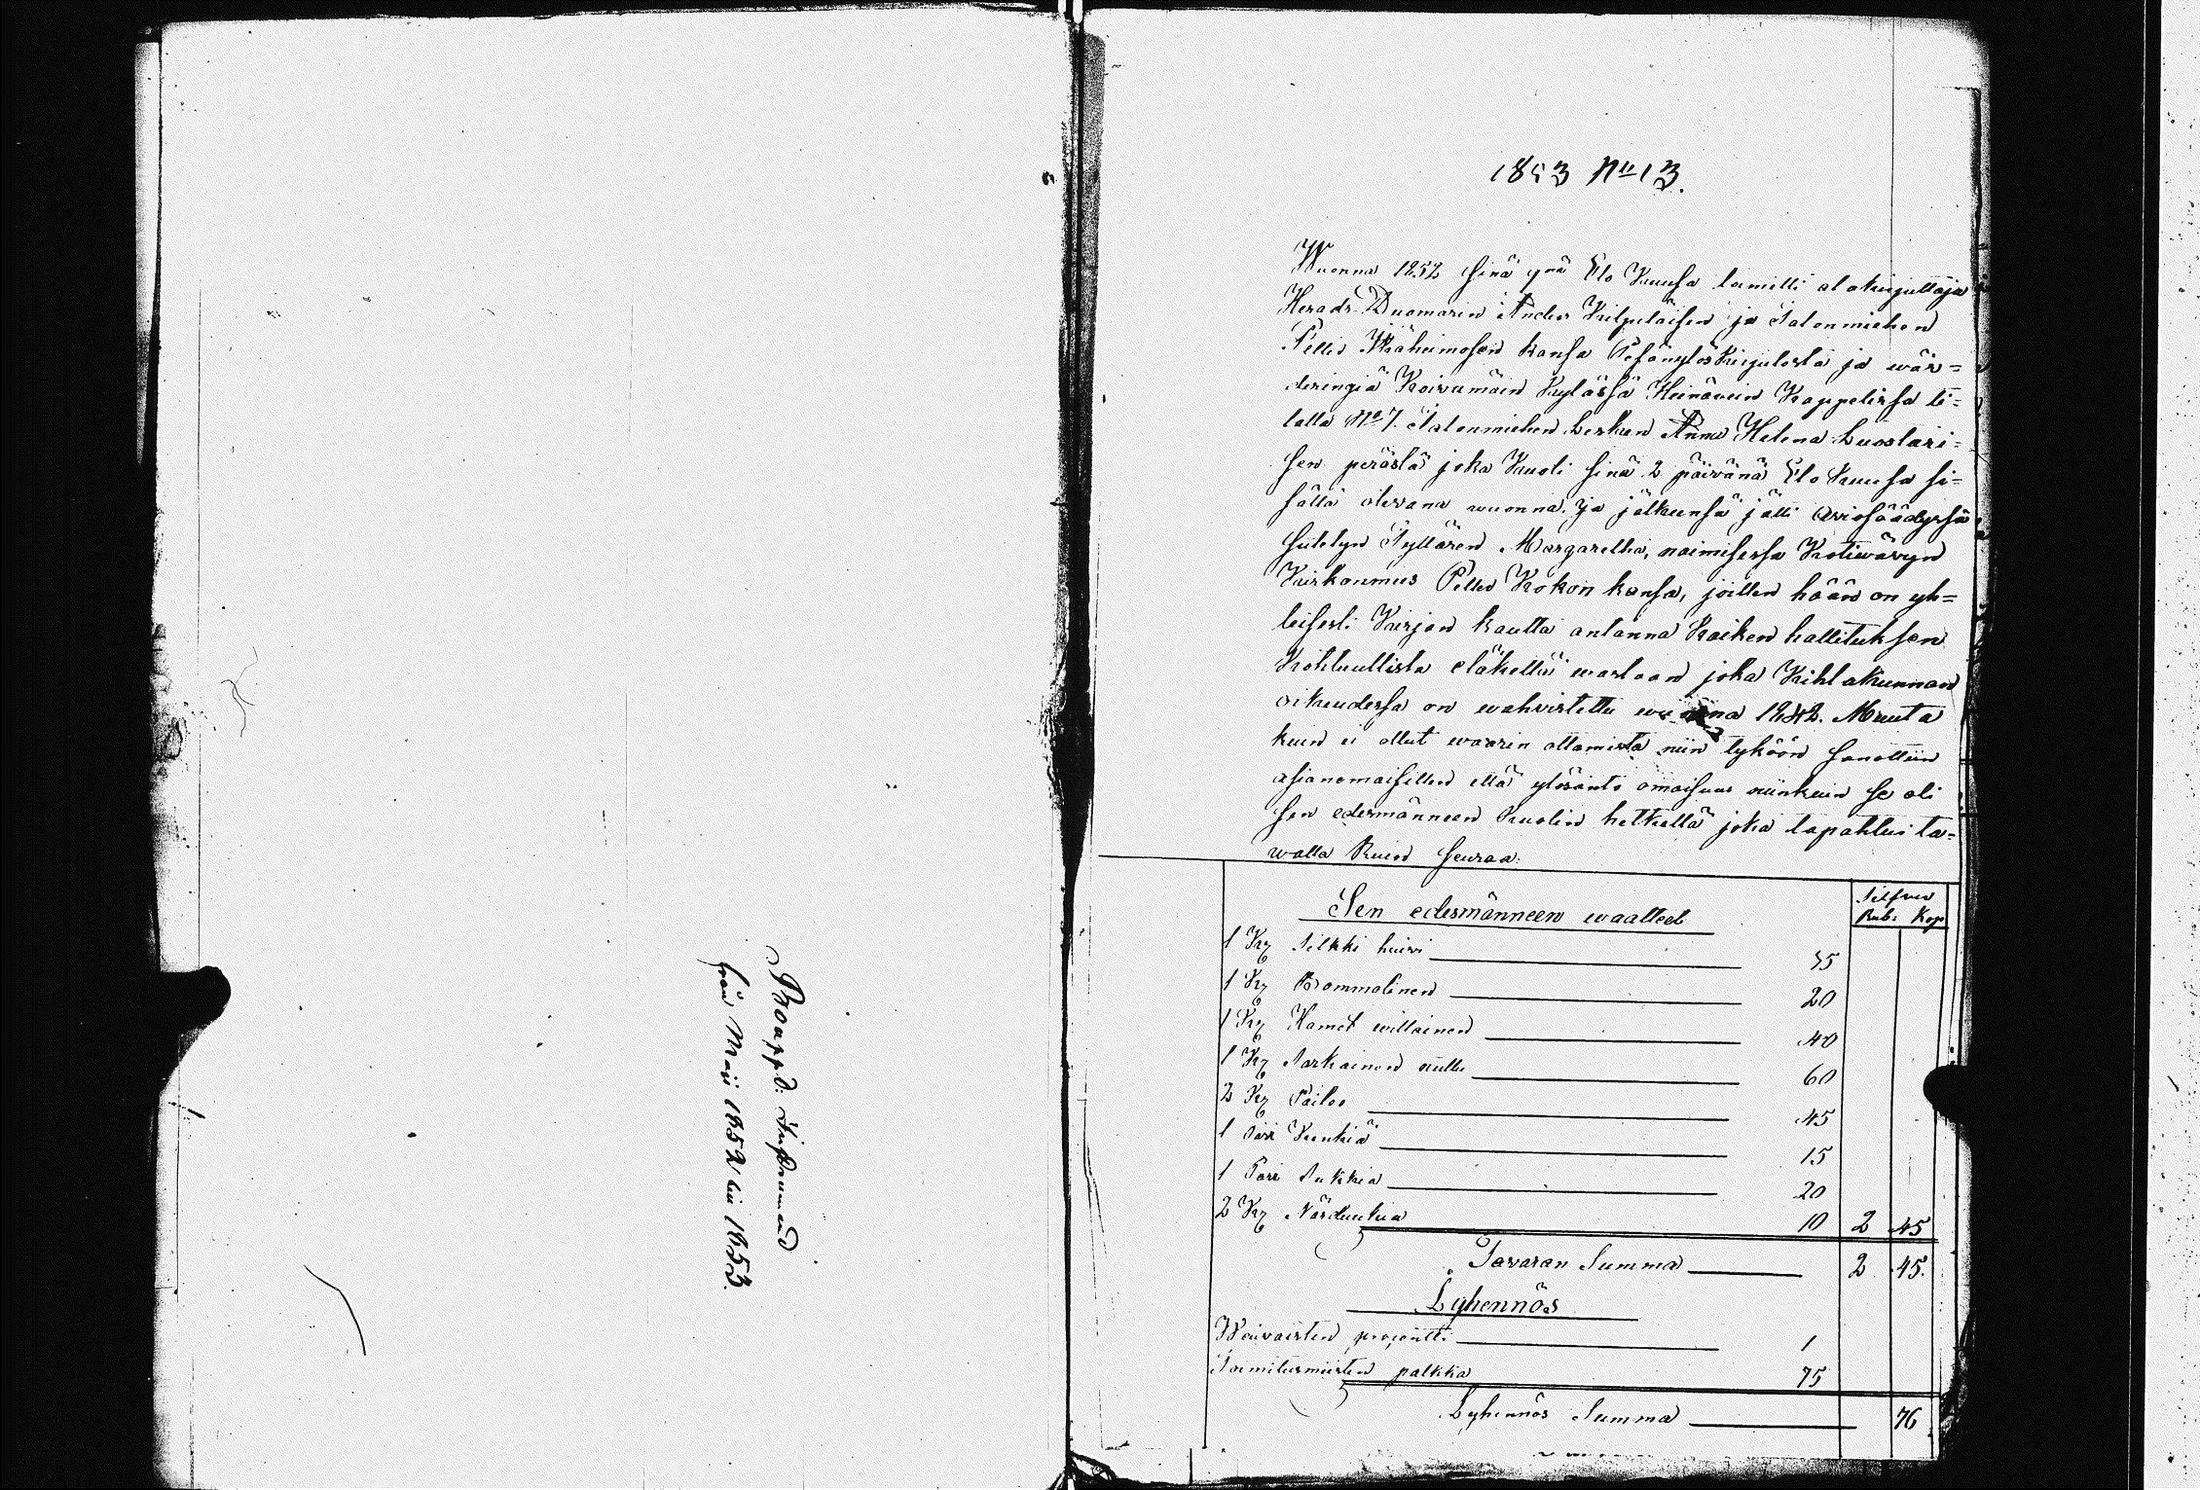 Bouppt: Instrumend
från Maii 1852 till 1853.
1853 No 13.
Wuonna 1852 sinä 9nä Elo Kuusa toimitti alakirjuttaja
Herads-Duomarin Ander Kilpeläisen ja Talonmiehen
Petter Wäheimosen kansa Pesänylöskirjutosta ja wär=
deringiä Koirumäin Kylässä Heinävein Kappelissa ti=
lalla No 7. Talonmiehen Lesken Anna Helena Luostari=
sen perästä joka Kuoli sinä 2 päivänä Elo Kuusa si=
sällä olevana wuonna. Ja jälkeensä jätti Aviosäädyssä
siitetyn Tyttären Margaretha, naimisessa Kotiwävyn
Kirkonmies Petter Kokon kansa, joillen hään on yh=
teisesti Kirjan kautta antanna Kaiken hallituksen
Kohtuullista eläkettä wastaan joka Kihlakunnan
oikeudessa on wahvistettu wuonna 1842. Muuta
kuin ei ollut waarin ottamista niin tyköön sanottiin
asianomaisillen että ylösanto omaisuus niinkuin se oli
sen edesmänneen Kuolin hetkellä joka tapahtui ta=
walla Kuin seuraa:
Silfver
Sen edesmänneen waatteet Rub: Kop
1 Kpl Silkki huivi 35
1 Kpl Bommolinen 20
1 Kpl Hamet willainen 40
1 Kpl Sarkainen nuttu 60
3 Kpl Paitoo 45
1 Pari Kenkiä 15
1 Pari Sukkia 20
2 Kpl Näsduukia 10 2 45
Tavaran Summa 2 45.
Lyhennös
Waivaisten prosentti 1
Toimitusmiesten palkka 75
Lyhennös Summa 76